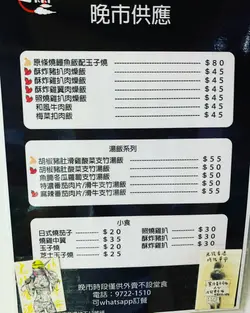 晚市供應
原條燒鰻魚飯配玉子燒 $80
酥炸豬扒肉燥飯 $45
酥炸雞扒肉燥飯 $45
酥炸雞翼肉燥飯 $45
照燒雞扒肉燥飯 $45
和風牛肉飯 $45
梅菜扣肉飯 $45
湯飯系列
胡椒豬肚滑雞酸菜支竹湯飯 $55
胡椒豬肚酸菜支竹湯飯 $50
魚腩冬瓜雞蛋支竹湯飯 $50
特濃番茄肉片/滑牛支竹湯飯 $50
麻辣番茄肉片/滑牛支竹湯飯 $55
小食
日式燒茄子 $20
燒雞中翼 $35
玉子燒 $20
芝士玉子燒 $25
照燒雞扒 $30
酥炸雞扒 $30
酥炸豬扒 $30
晚市時段僅供外賣不設堂食
電話：9722-1510
可whatsapp訂餐